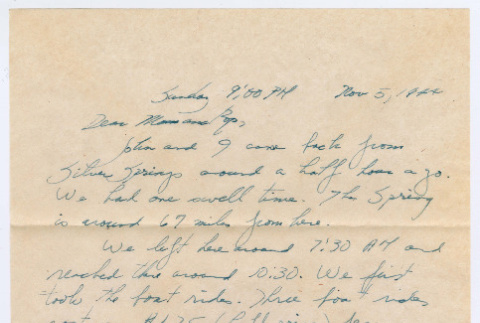 Sunday 9:00 PM Nov 5, 1944
Dear Mom and Pop,
John and I came back from
Silver Springs around a half hour ago.
We had one swell time. The Spring
is around 67 miles from here.
We left here around 7:30 AM and
reached there around 10:30. We first
took the boat rides. Three boat rides